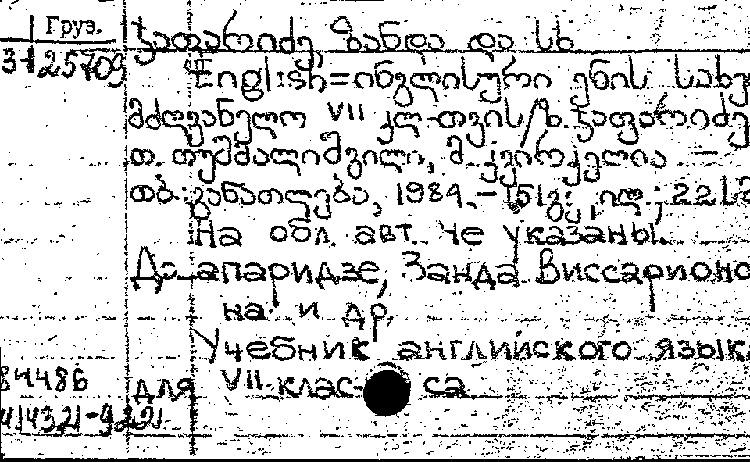 Груз.
ჯაფარიძე, ზანდა და სხ
31 25709
English=ინგლისური ენის სახე
მძღვანელო VII კლ-თვის/ზ. ჯაფარიძე
თ. თუშმალიშვილი, მ. კვირკველია. —
თბ.: განათლება, 1984. – 151გვ.; ილ.; 22სმ
На обл. авт. не указаны.
Джапаридзе, Занда Виссарионо
на и др.
Учебник английского языка
84486 для VII клас- са